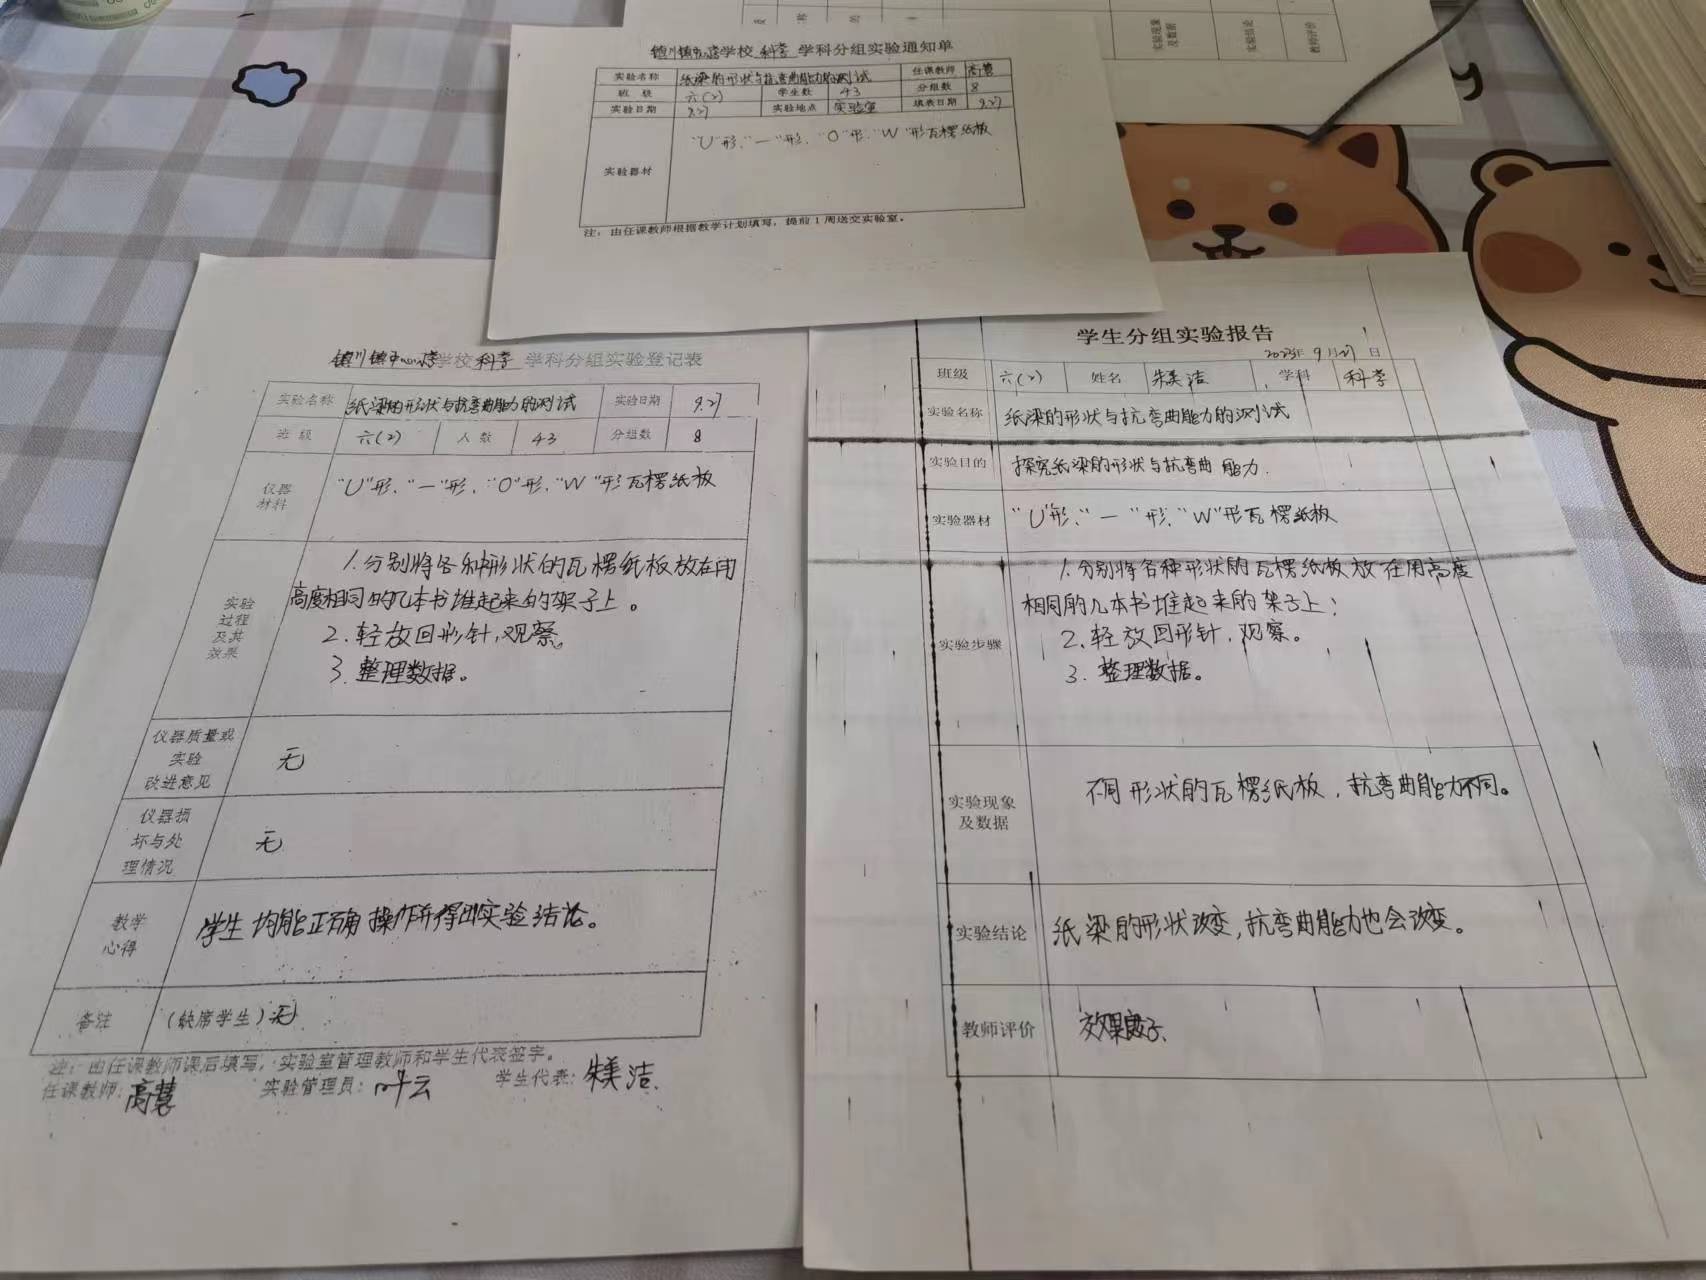 镇川镇中心小学学校 科学 学科分组实验通知单
实验名称 纸梁的形状与抗弯曲能力的测试 任课教师 高慧
班 级 六(2) 学生数 43 分组数 8
实验日期 9.27 实验地点 实验室 填表日期 9.27
实验器材 "U"形、"一"形、"O"形、"W"形瓦楞纸板
注：由任课教师根据教学计划填写，提前1周送交实验室。
实验现象及数据
实验结论
教师评价
学校 科学 学科分组实验登记表
实验名称 纸梁的形状与抗弯曲能力的测试 实验日期 9.27
班 级 六(2) 人 数 43 分组数 8
仪器材料 "U"形、"一"形、"O"形、"W"形瓦楞纸板
实验过程及其效果
1.分别将各种形状的瓦楞纸板放在用
高度相同的几本书堆起来的架子上。
2.轻放回形针,观察。
3.整理数据。
仪器质量或实验改进意见 无
仪器损坏与处理情况 无
教学心得 学生均能正确操作并得出实验结论。
备注 (缺席学生)无
注：由任课教师课后填写，实验室管理教师和学生代表签字。
任课教师:高慧 实验管理员:叶云 学生代表:朱美洁
学生分组实验报告
2023年9月27日
班级 六(2) 姓名 朱美洁 学科 科学
实验名称 纸梁的形状与抗弯曲能力的测试
实验目的 探究纸梁的形状与抗弯曲能力.
实验器材 "U"形、"一"形、"W"形瓦楞纸板
实验步骤
1.分别将各种形状的瓦楞纸板放在用高度
相同的几本书堆起来的架子上;
2.轻放回形针,观察。
3.整理数据。
实验现象及数据 不同形状的瓦楞纸板,抗弯曲能力不同。
实验结论 纸梁的形状改变,抗弯曲能力也会改变。
教师评价 效果良好.